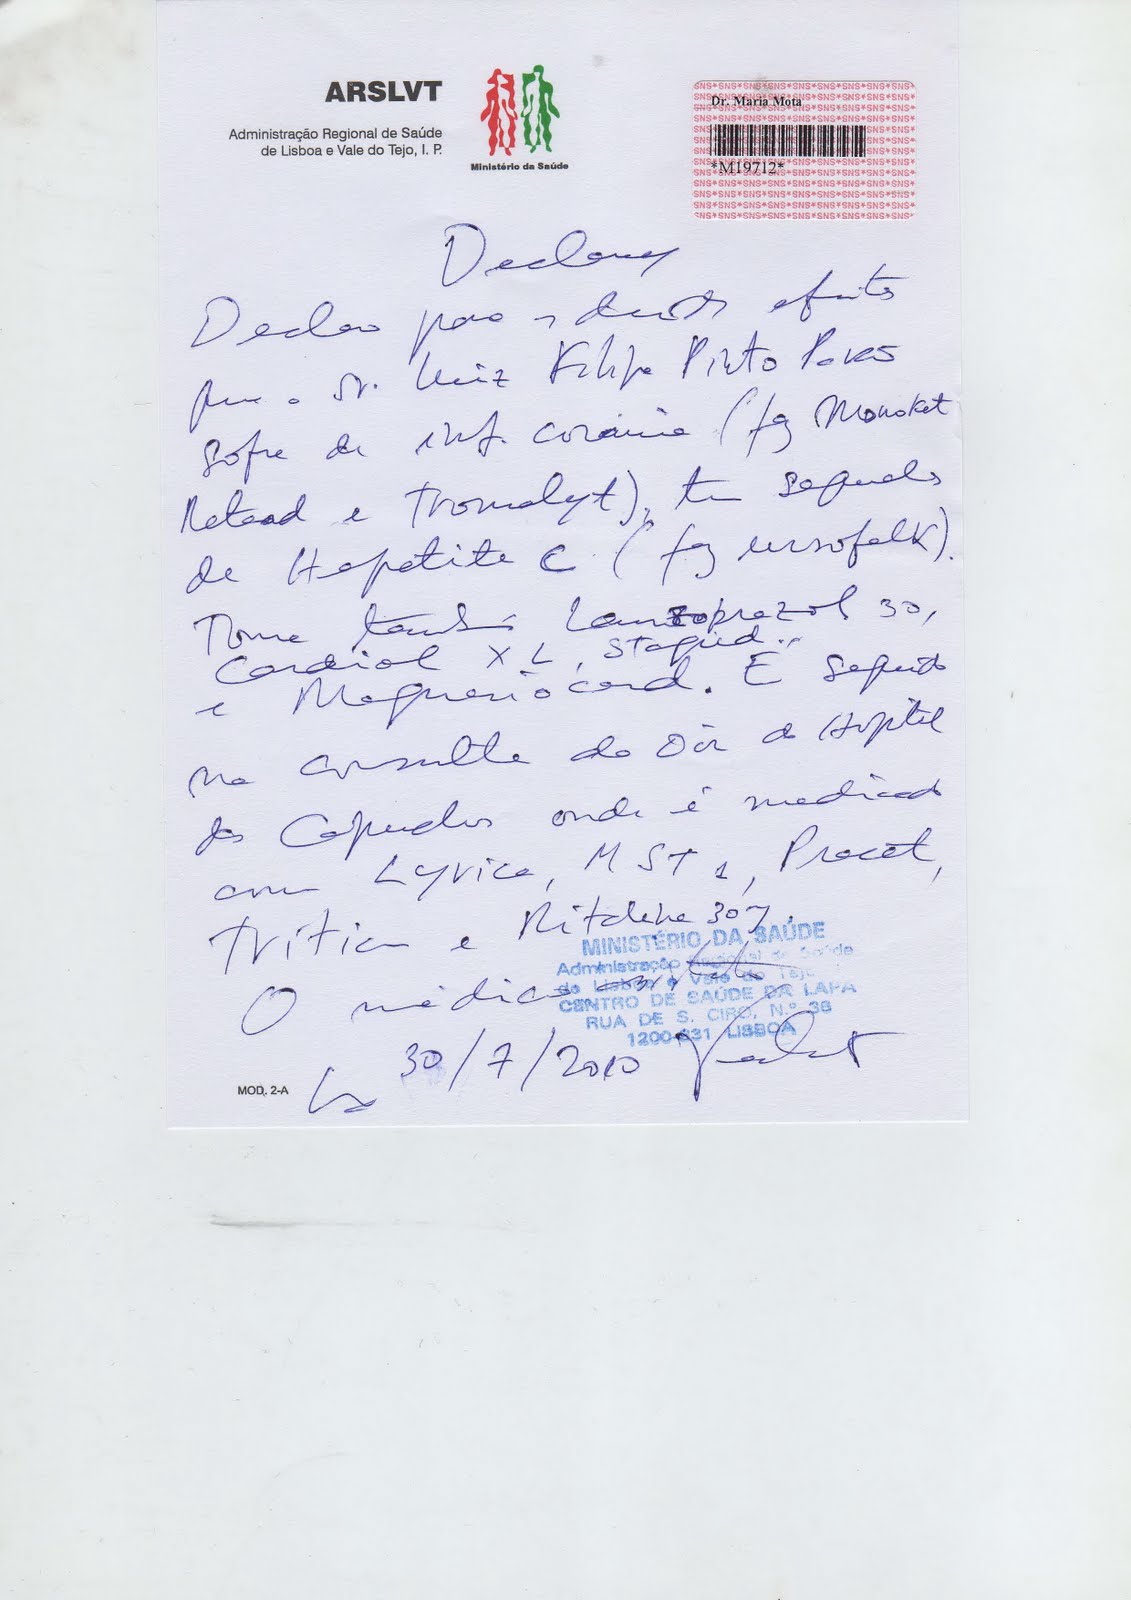 ARSLVT
Administração Regional de Saúde
de Lisboa e Vale do Tejo, I. P.
Ministério da Saúde
Dr. Maria Mota
*M19712*
Declaro para devidos efeitos
que o Sr. Luiz Filipe Pinto
sofre de inf. coronária (fg Monoket
Retard e Tromalyt), tem sequelas
de Hepatite C (fg ursofalk).
Toma também Lanzoprazol 30,
Cardiol XL, Stagid..
e Magnesiocard. É seguido
na consulta da Dor do Hospital
dos Capuchos onde é medicado
com Lyrica, MST 1, Procet,
Triticum e Ritalina 30
MINISTÉRIO DA SAÚDE
Administração Regional de Saúde
de Lisboa e Vale do Tejo
CENTRO DE SAÚDE DA LAPA
RUA DE S. CIRO, N.º 36
1200-831 LISBOA
O médico
Lx 30/7/2010
MOD. 2-A